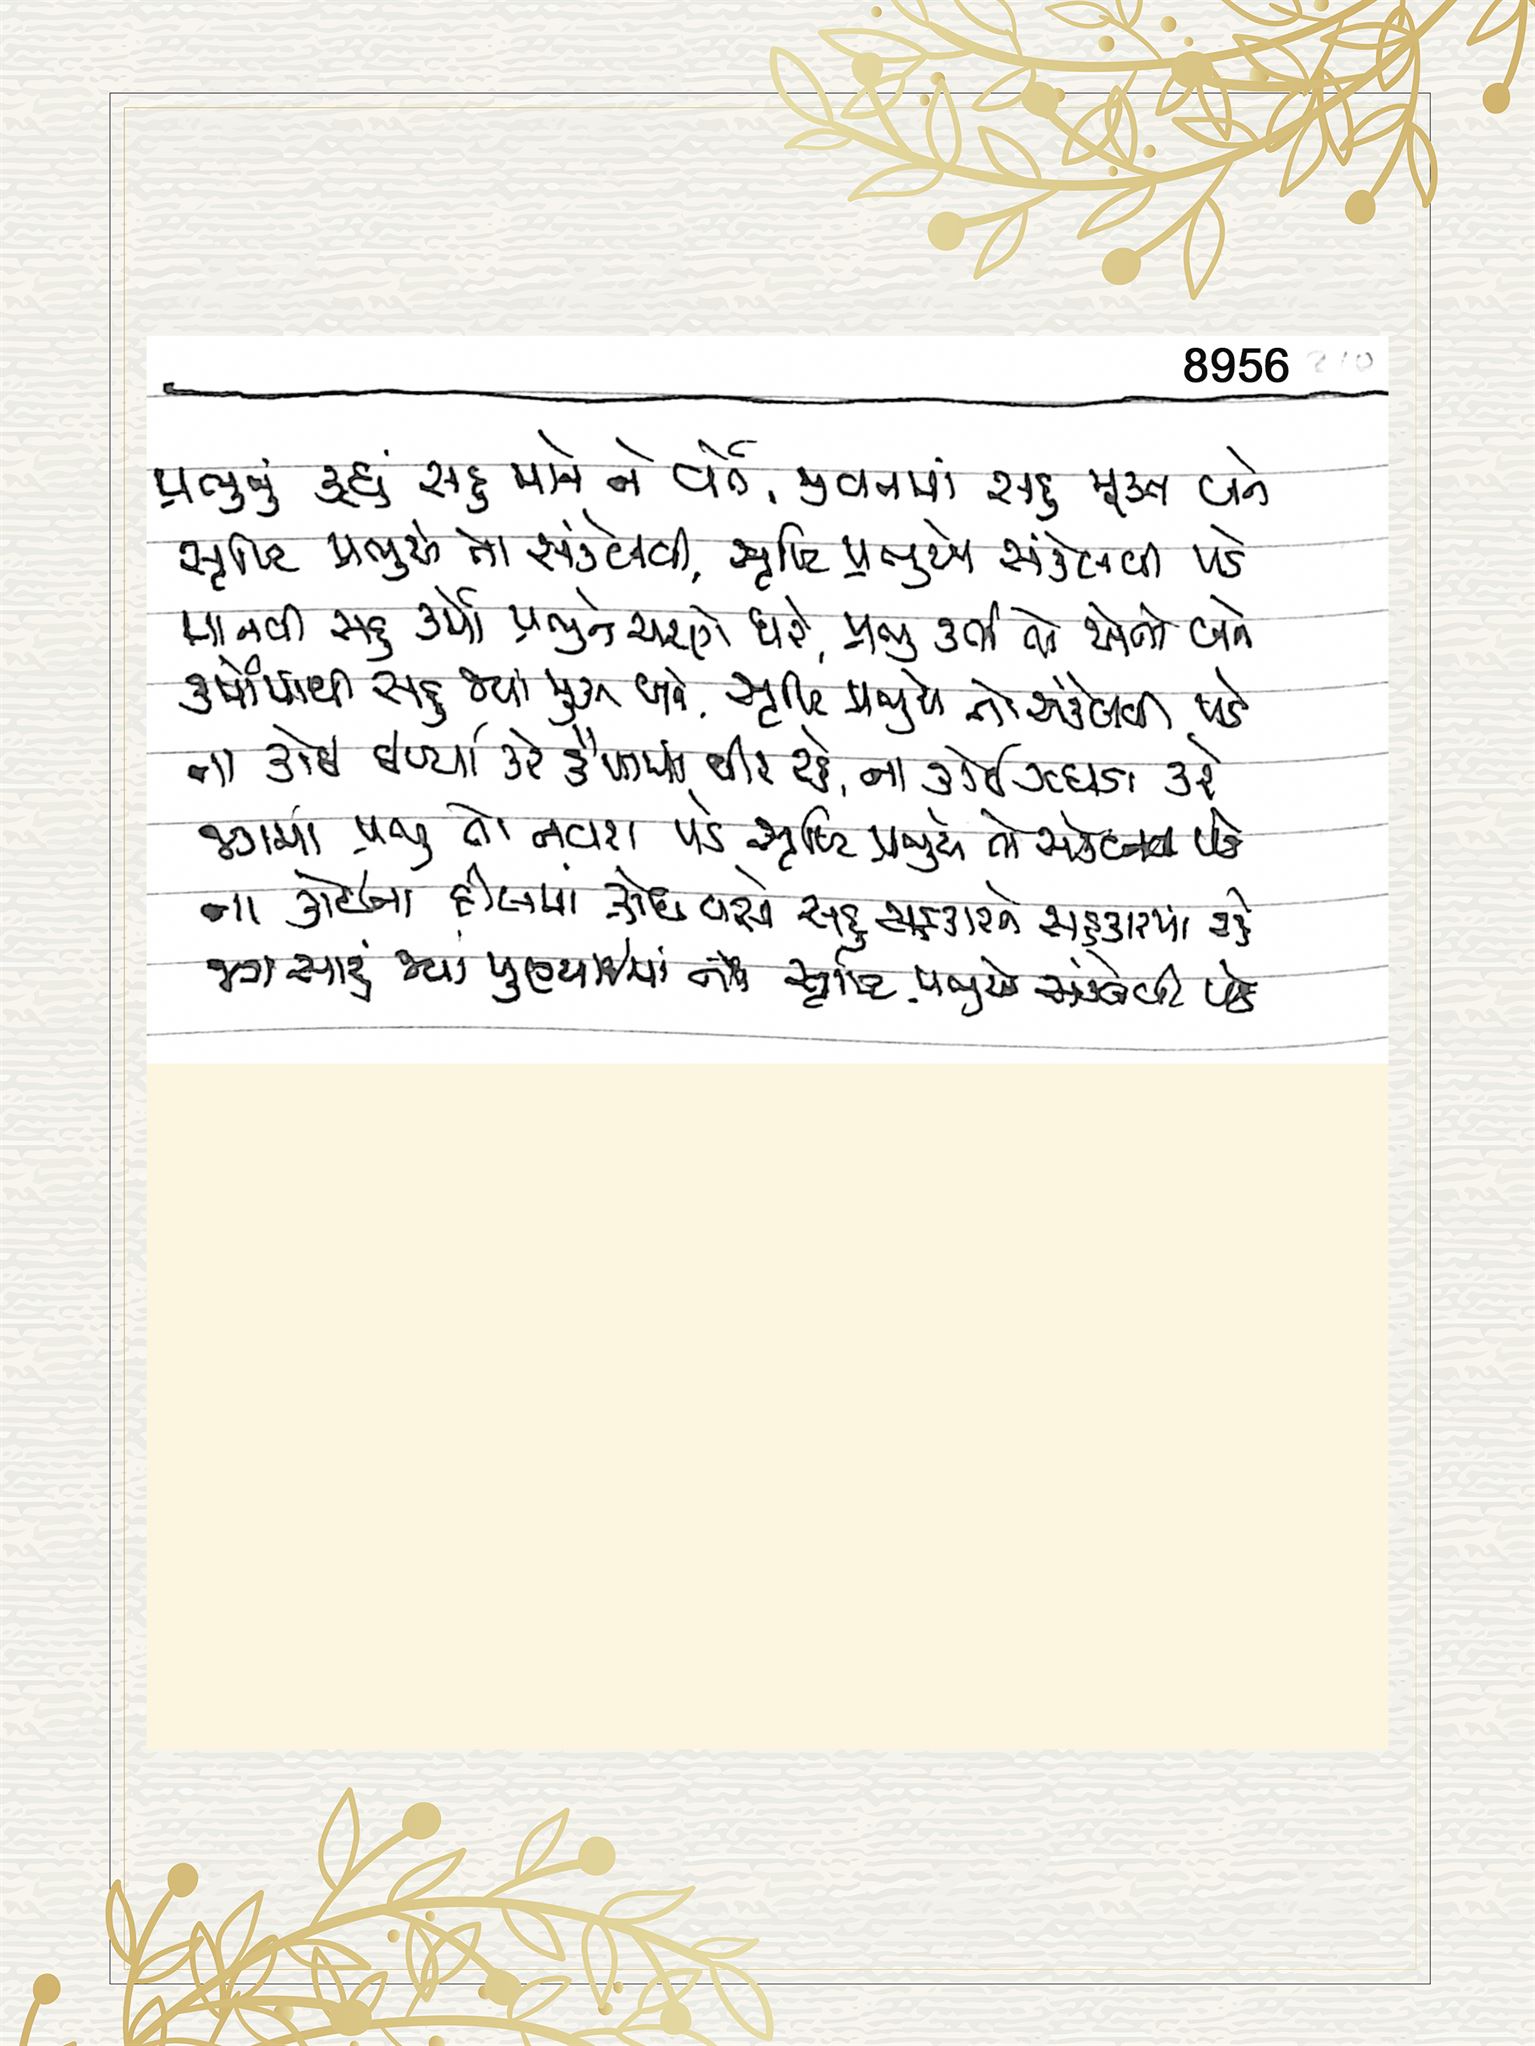 8956
પ્રભુનું કહ્યું સહુ માને ને વર્તે, જીવનમાં સહુ મુક્ત બને
સૃષ્ટિ પ્રભુએ તો સંકેલવી, સૃષ્ટિ પ્રભુએ સંકેલવી પડે
માનવી સહુ કર્મો પ્રભુને ચરણે ધરે, પ્રભુ કર્તા તો એનો બને
કર્મોમાંથી સહુ જ્યાં મુક્ત બને, સૃષ્ટિ પ્રભુએ તો સંકેલવી પડે
ના કોઈ ઇર્ષ્યા કરે સ્થિર રહે, ના કોઈ ઝઘડા કરે
જગમાં પ્રભુ તો નવરા પડે સૃષ્ટિ પ્રભુએ તો સંકેલવી પડે
ના કોઈના દીલમાં ક્રોધ વસે સહુ સહકારને સહકારમાં રહે
જગ સારું જ્યાં પુણ્યશાળીમાં સૃષ્ટિ પ્રભુએ સંકેલવી પડે